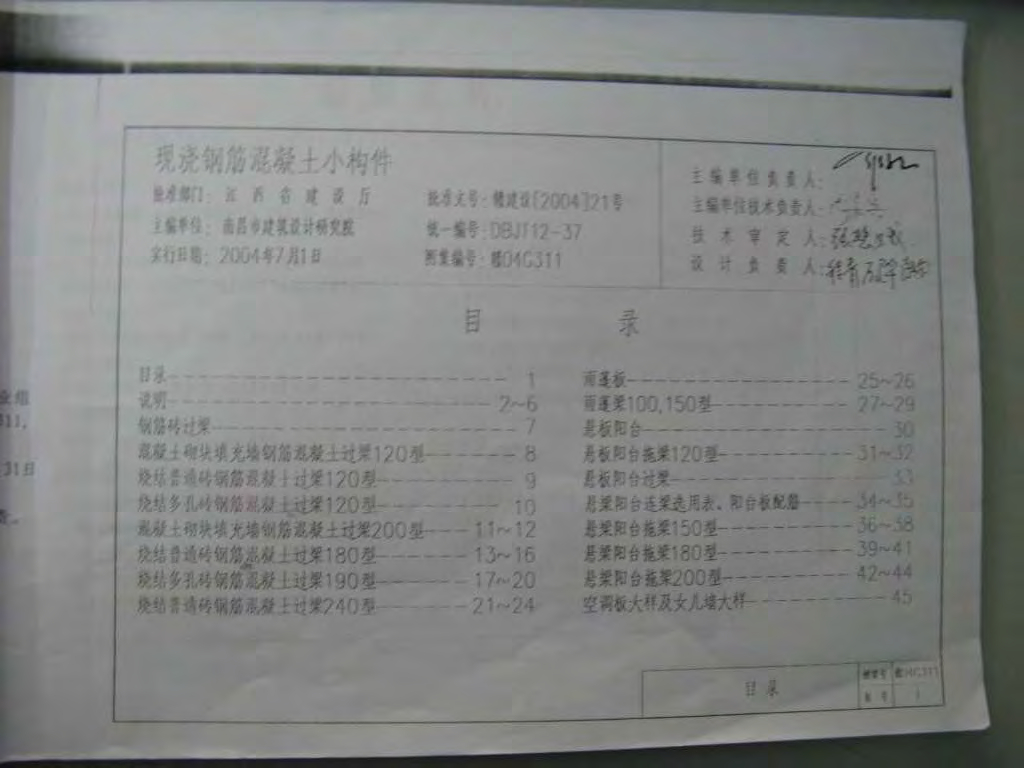 现浇钢筋混凝土小构件
批准部门：江西省建设厅
批准文号：赣建设[2004]21号
主编单位：南昌市建筑设计研究院
统一编号：DBJT12-37
实行日期：2004年7月1日
图集编号：赣04G311
主编单位负责人：
主编单位技术负责人：
技术审定人：
设计负责人：
目 录
目录 1
说明 2~6
钢筋砖过梁 7
混凝土砌块填充墙钢筋混凝土过梁120型 8
烧结普通砖钢筋混凝土过梁120型 9
烧结多孔砖钢筋混凝土过梁120型 10
混凝土砌块填充墙钢筋混凝土过梁200型 11~12
烧结普通砖钢筋混凝土过梁180型 13~16
烧结多孔砖钢筋混凝土过梁190型 17~20
烧结普通砖钢筋混凝土过梁240型 21~24
雨蓬板 25~26
雨蓬梁100,150型 27~29
悬板阳台 30
悬板阳台拖梁120型 31~32
悬板阳台过梁 33
悬梁阳台连梁选用表、阳台板配筋 34~35
悬梁阳台拖梁150型 36~38
悬梁阳台拖梁180型 39~41
悬梁阳台拖梁200型 42~44
空调板大样及女儿墙大样 45
目录
图集号 赣04G311
页号 1
31日